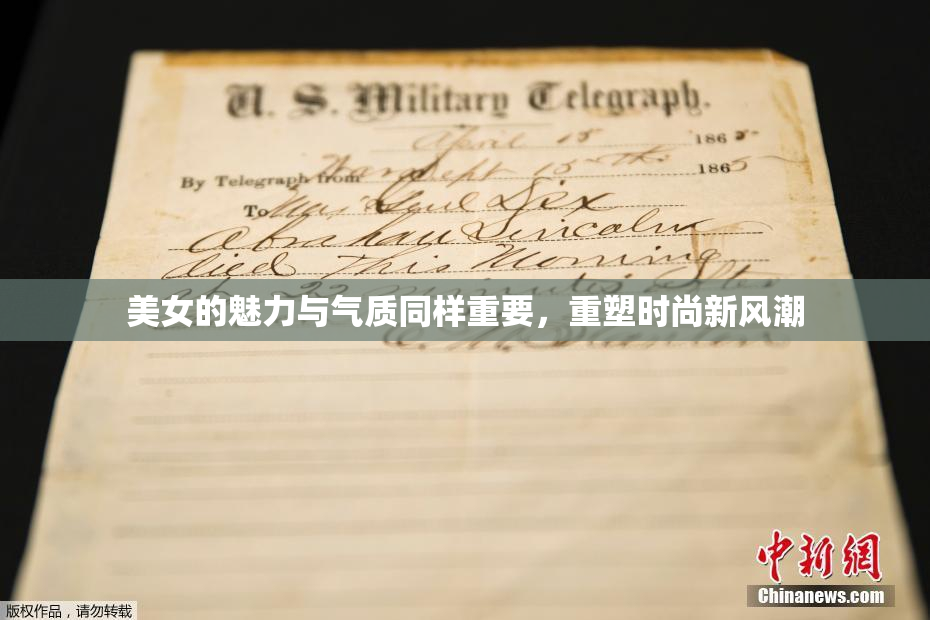 U. S. Military Telegraph.
April 15 1865
By Telegraph from War Dept 15th 1865
To Maj Genl Dix
Abraham Lincoln
died This Morning
at 22 minutes after
美女的魅力与气质同样重要，重塑时尚新风潮
E. M. Stanton
中新網
Chinanews.com
版权作品，请勿转载